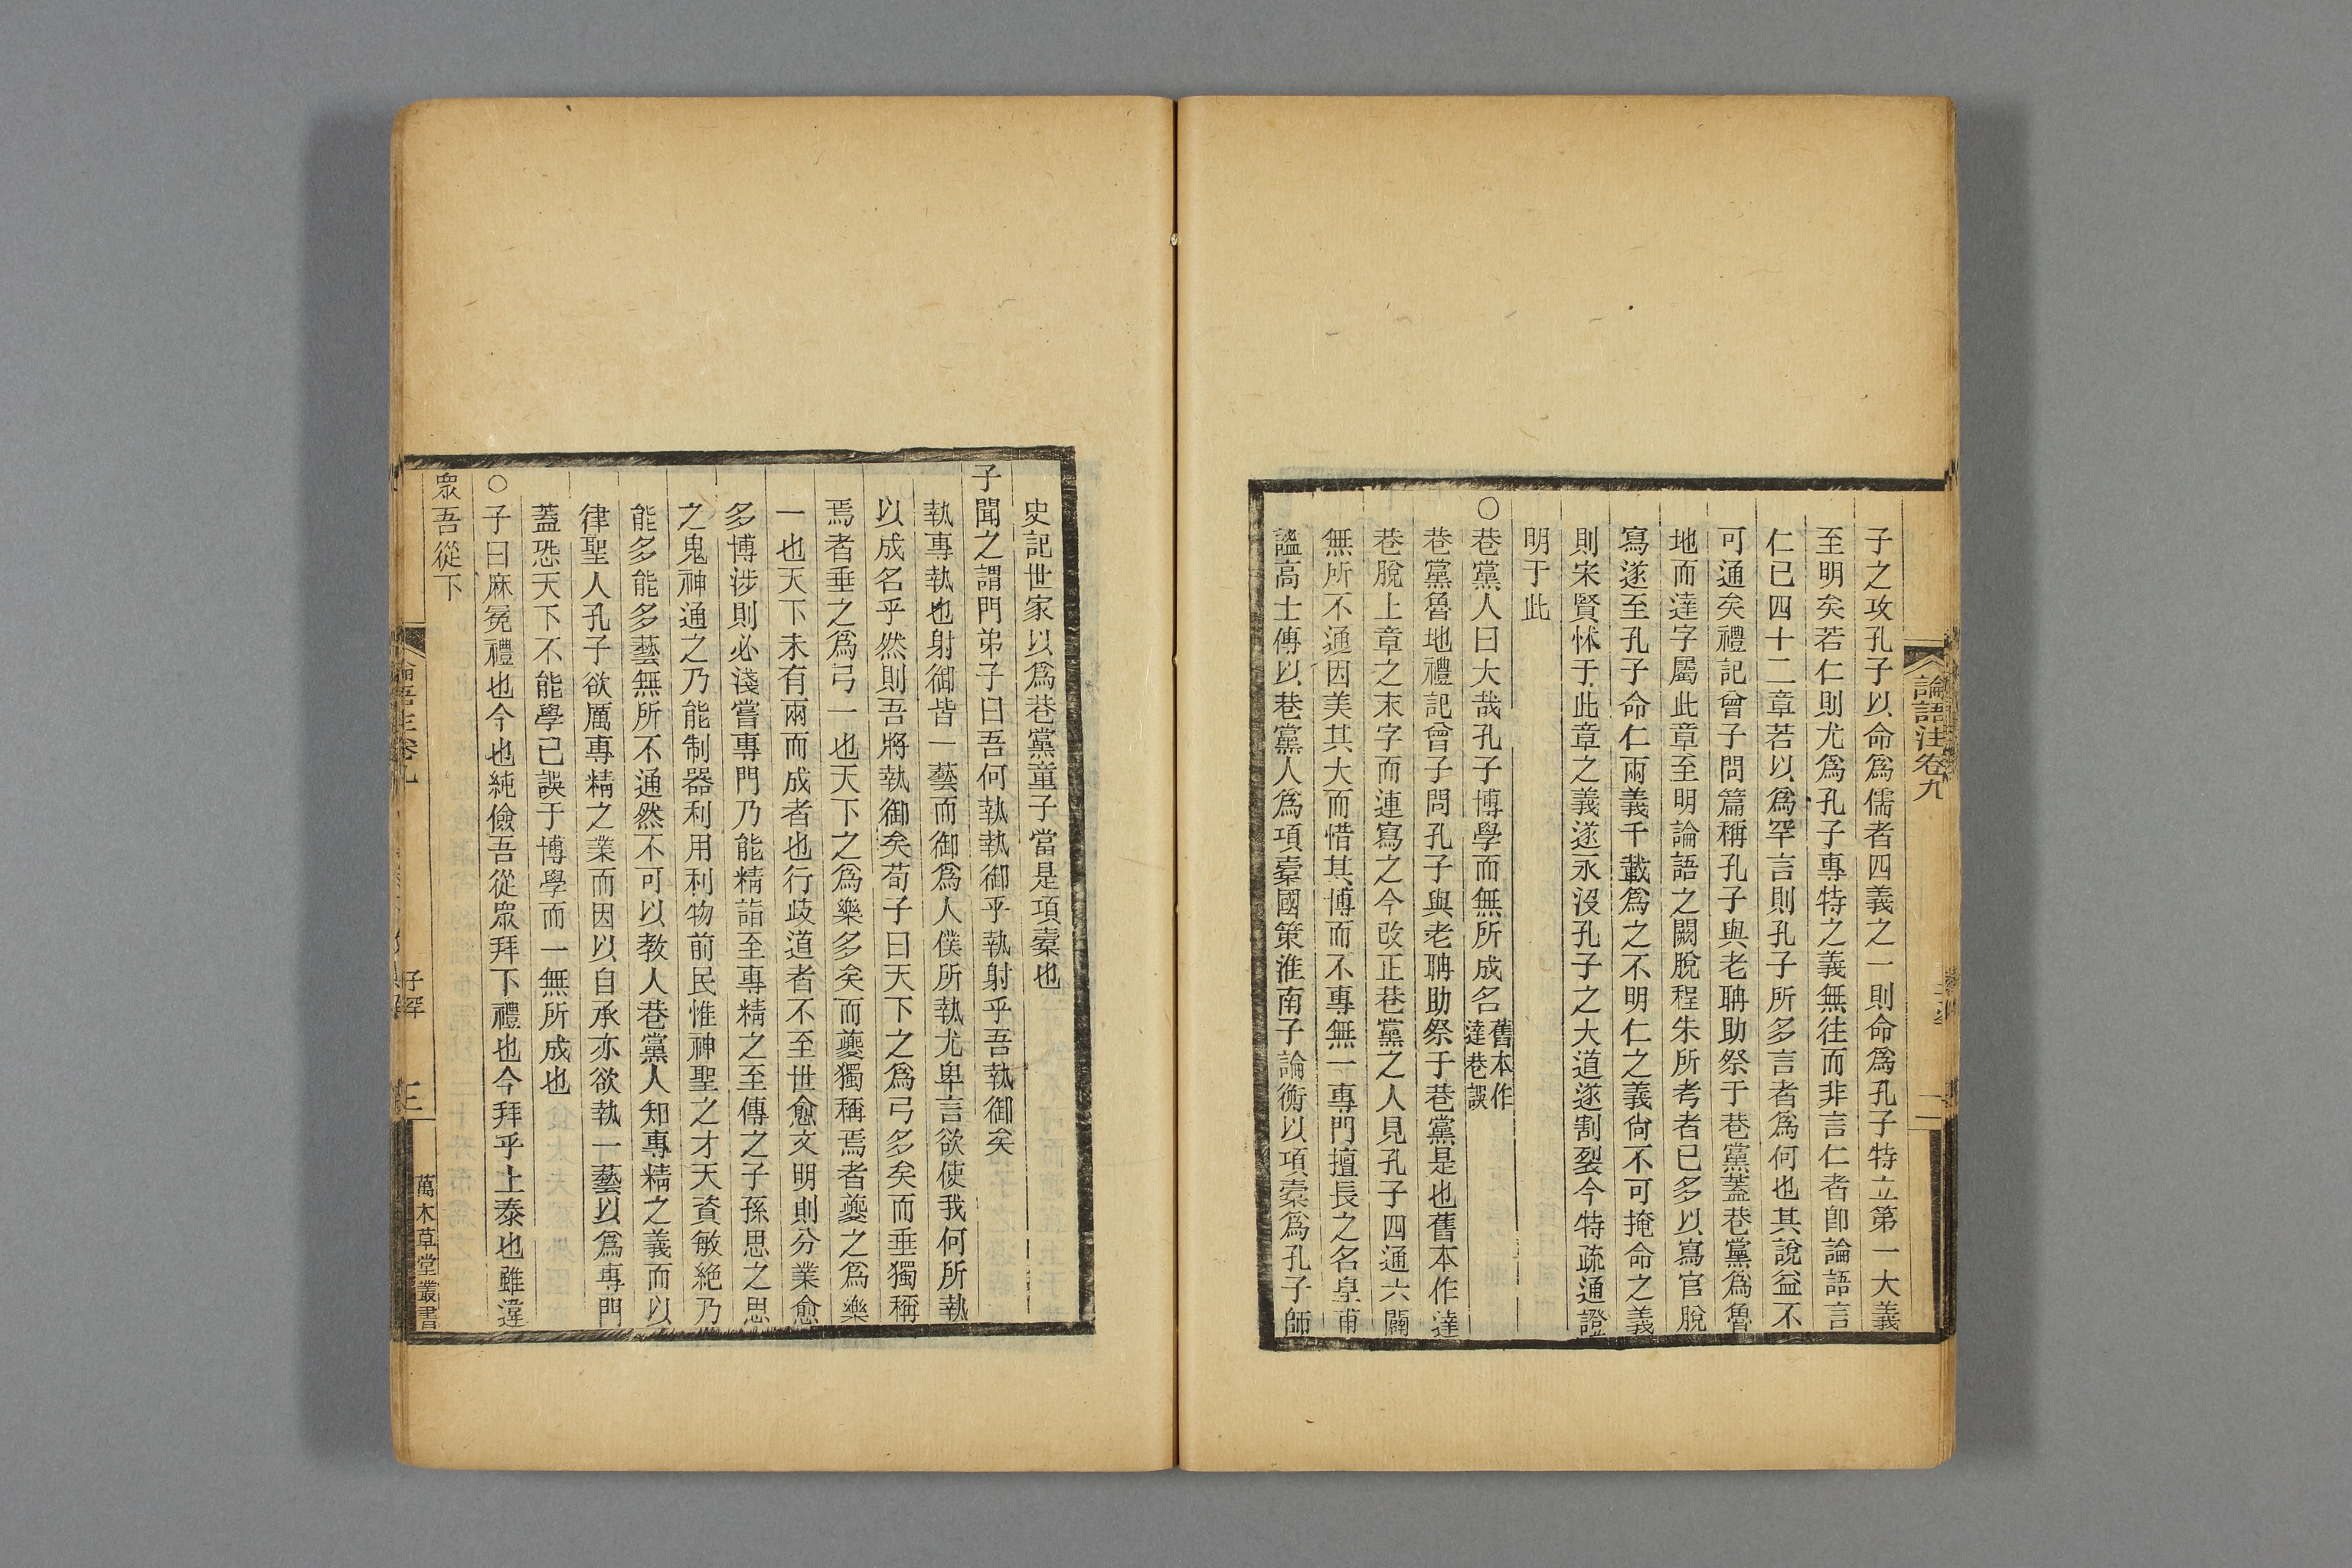 論語注卷九
二
子之攻孔子以命爲儒者四義之一則命爲孔子特立第一大義
至明矣若仁則尤爲孔子專特之義無往而非言仁者卽論語言
仁已四十二章若以爲罕言則孔子所多言者爲何也其說益不
可通矣禮記曾子問篇稱孔子與老聃助祭于巷黨蓋巷黨爲魯
地而達字屬此章至明論語之闕脫程朱所考者已多以寫官脫
寫遂至孔子命仁兩義千載爲之不明仁之義尙不可掩命之義
則宋賢怵于此章之義遂永沒孔子之大道遂割裂今特疏通證
明于此
○巷黨人曰大哉孔子博學而無所成名舊本作達巷誤
巷黨魯地禮記曾子問孔子與老聃助祭于巷黨是也舊本作達
巷脫上章之末字而連寫之今改正巷黨之人見孔子四通六闢
無所不通因美其大而惜其博而不專無一專門擅長之名皇甫
謐高士傳以巷黨人爲項橐國策淮南子論衡以項橐爲孔子師
史記世家以爲巷黨童子當是項橐也
子聞之謂門弟子曰吾何執執御乎執射乎吾執御矣
執專執也射御皆一藝而御爲人僕所執尤卑言欲使我何所執
以成名乎然則吾將執御矣荀子曰天下之爲弓多矣而垂獨稱
焉者垂之爲弓一也天下之爲樂多矣而夔獨稱焉者夔之爲樂
一也天下未有兩而成者也行歧道者不至世愈文明則分業愈
多博涉則必淺嘗專門乃能精詣至專精之至傳之子孫思之思
之鬼神通之乃能制器利用利物前民惟神聖之才天資敏絶乃
能多能多藝無所不通然不可以教人巷黨人知專精之義而以
律聖人孔子欲厲專精之業而因以自承亦欲執一藝以爲專門
蓋恐天下不能學已誤于博學而一無所成也
○子曰麻冕禮也今也純儉吾從眾拜下禮也今拜乎上泰也雖違
眾吾從下
論語注卷九
子罕
三
萬木草堂叢書